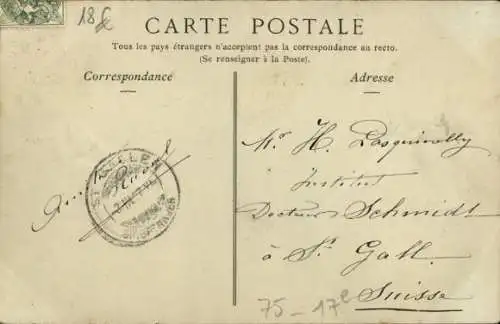 18 £
CARTE POSTALE
Tous les pays étrangers n'acceptent pas la correspondance au recto.
(Se renseigner à la Poste).
Correspondance
Adresse
Mr H.
Institut
Docteur Schmidt
à St Gall
Suisse
75 – 17e